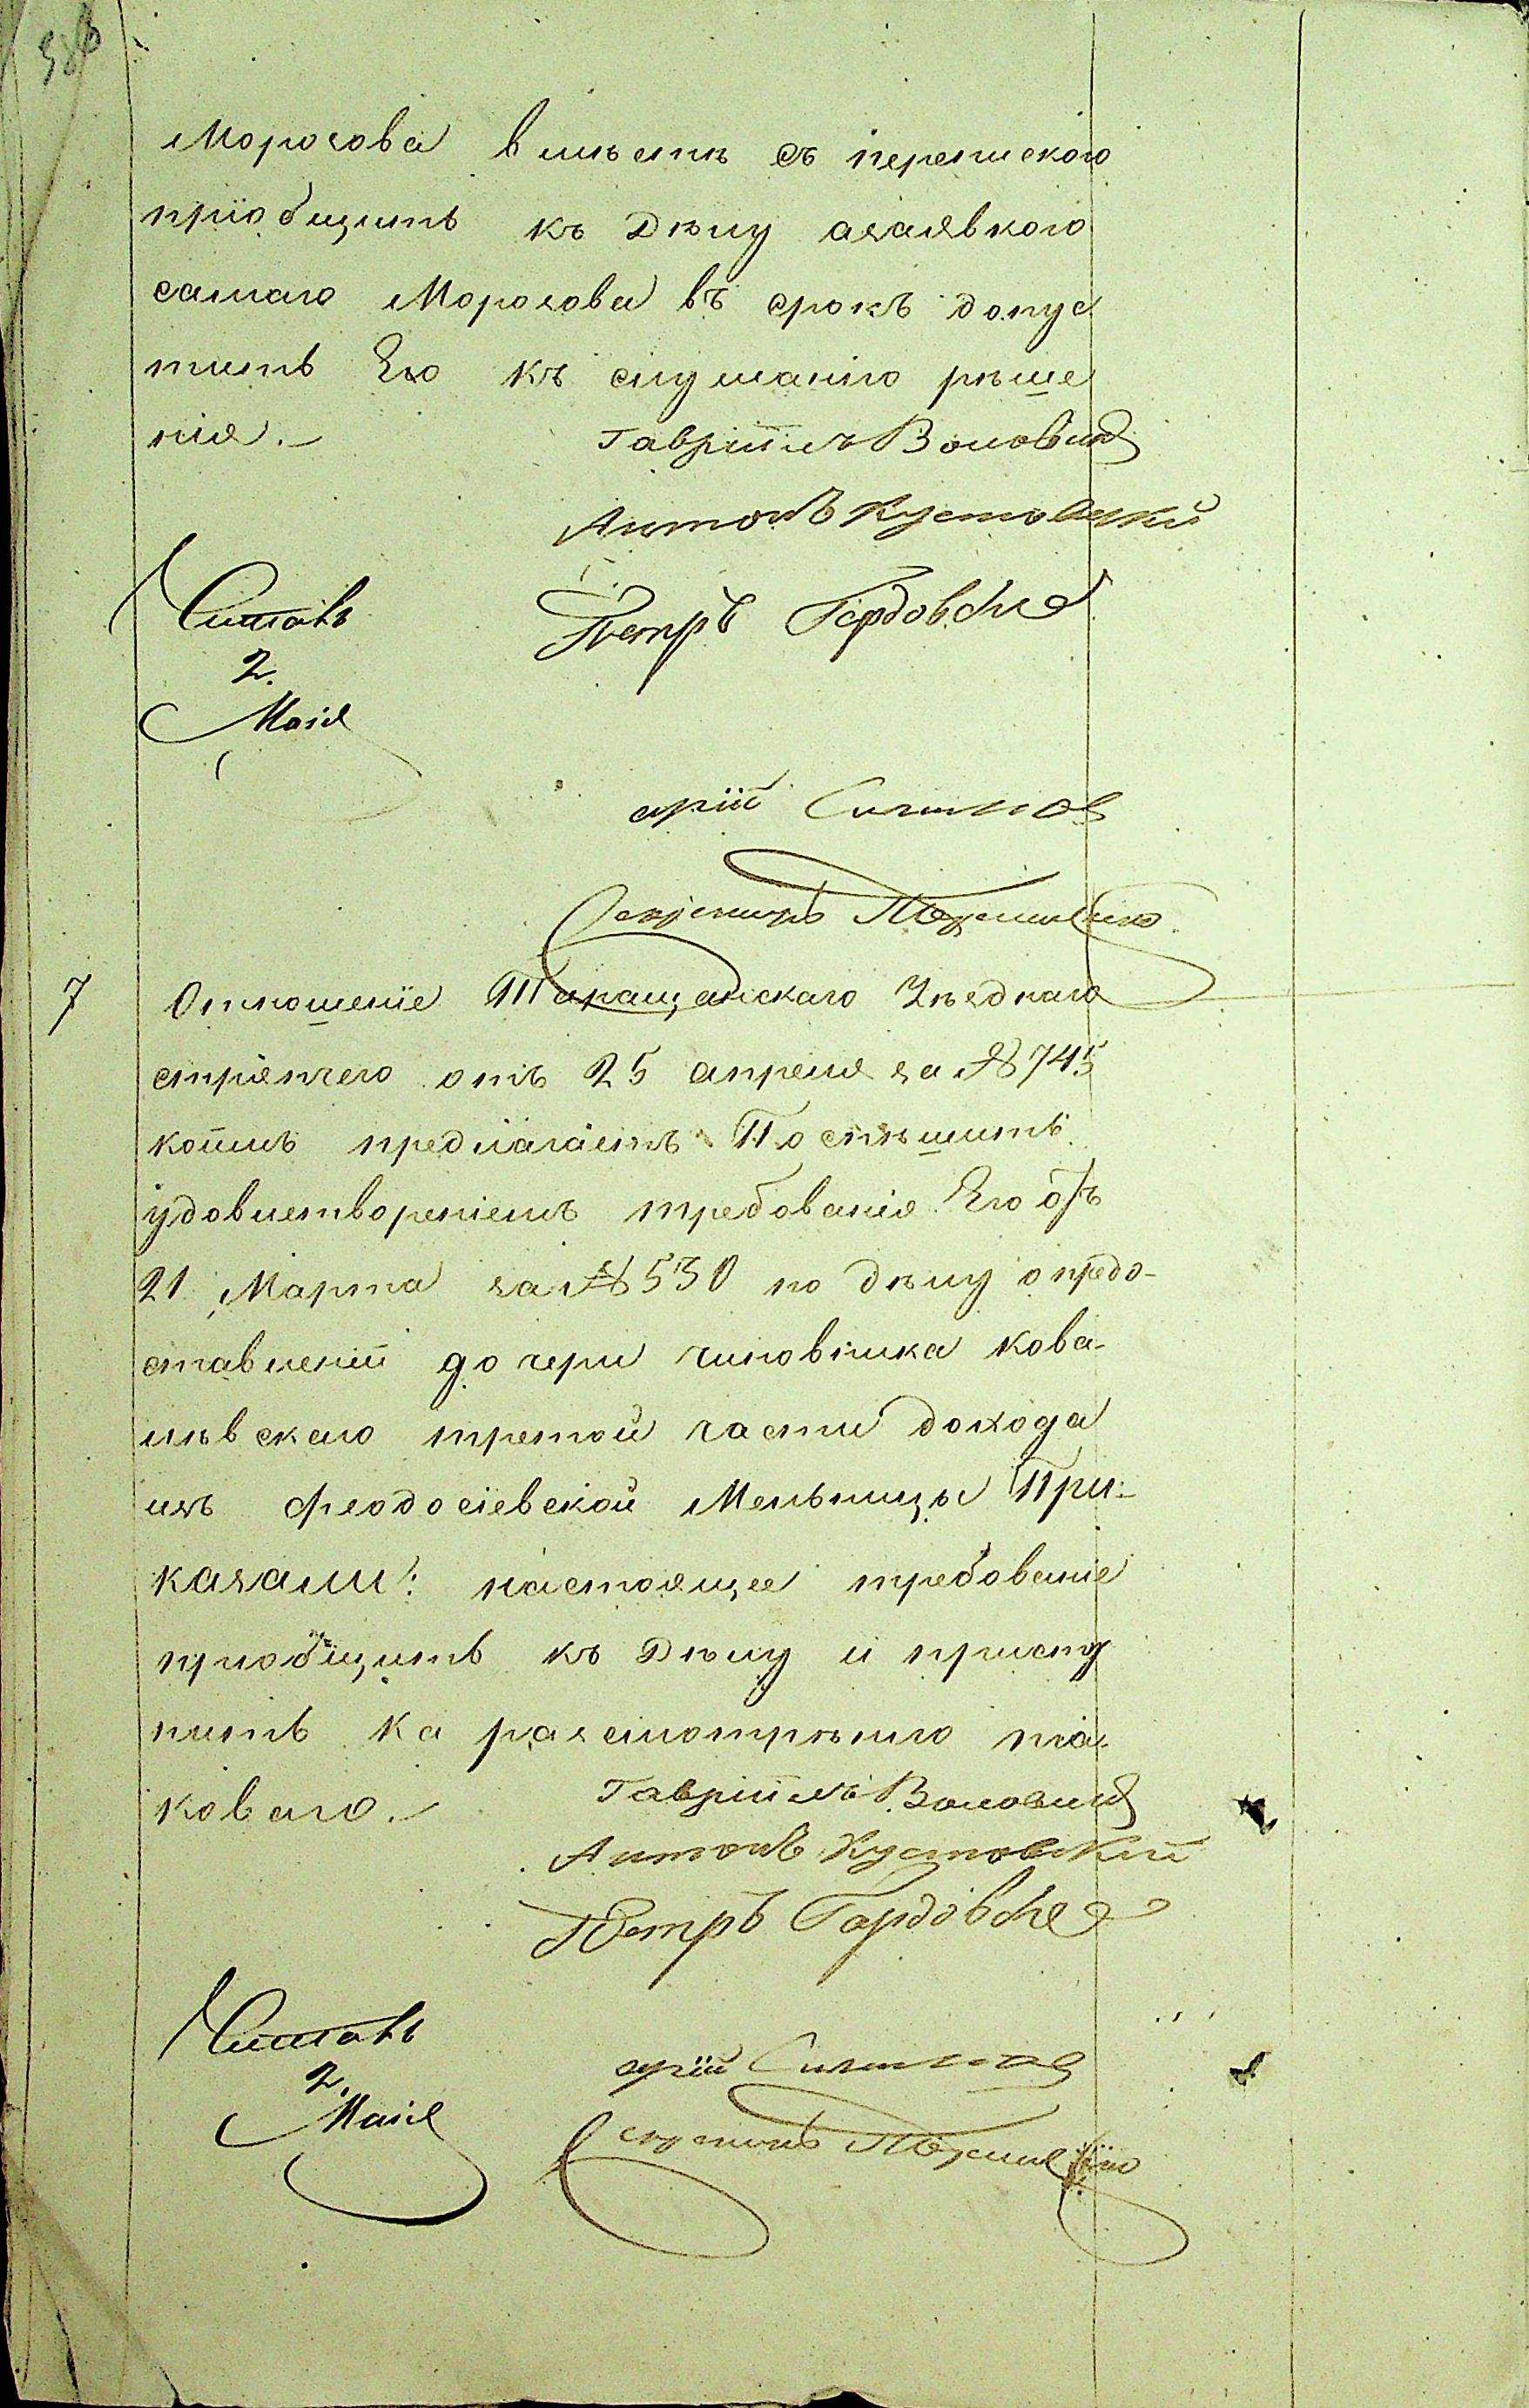 Морозова вмѣстѣ съ перепискою
пріобщить къ Дѣлу азаявкою
самаго Морозова въ срокъ допус
тить Его къ слушанію рѣше
нія.-
Гавріилъ Воловикъ
Антонъ Кустовскій
Петръ Гордовскій
Читалъ
2.
Маія
7
Отношеніе Таращанскаго Уѣзднаго
стряпчего отъ 25 апреля за № 745
коимъ предлагаетъ Поспѣшить
удовлетвореніемъ требованія Его отъ
21 Марта за № 530 по дѣлу о предо-
ставленіи дочери чиновника Кова-
лѣвскаго третой части дохода
изъ Феодосіевской Мельницы При-
казали: настоящее требованіе
приобщить къ Дѣлу и присту
пить ка разсмотрѣнію та-
коваго.-
Гавріилъ Воловикъ
Антонъ Кустовскій
Петръ Гордовскій
Читалъ
2.
Маія
Секретарь